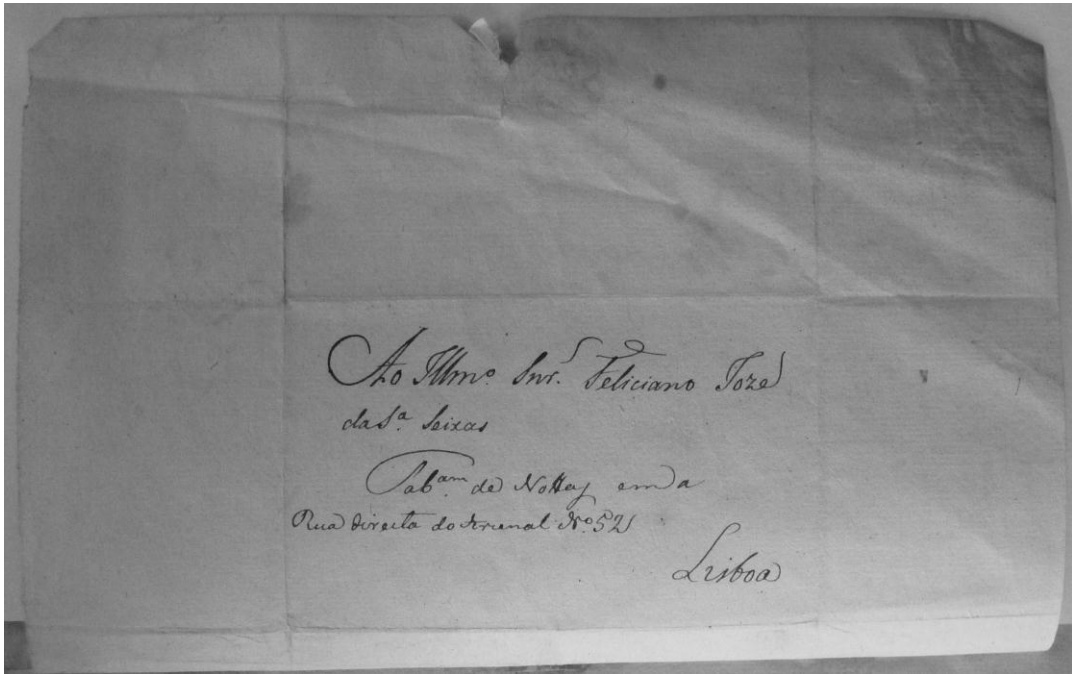 Ao Illmo. Snr. Feliciano Joze
da Sa. Seixas
Tabam. de Nottas em a
Rua directa do Arcenal No. 52
Lisboa